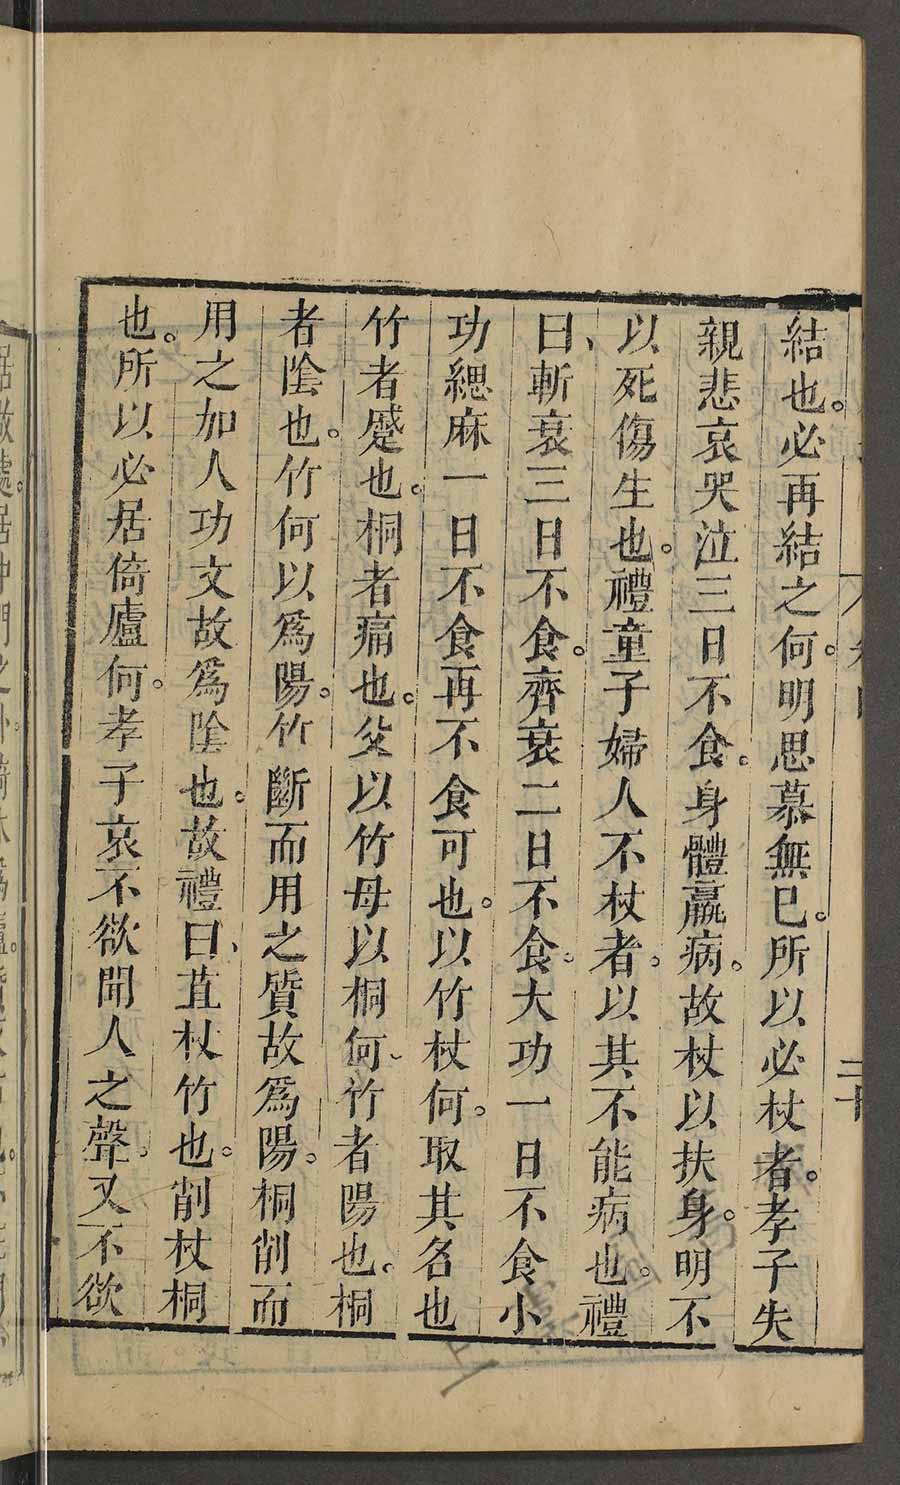 結也。必再結之何。明思慕無已。所以必杖者。孝子失
親悲哀哭泣三日不食。身體羸病。故杖以扶身。明不
以死傷生也。禮童子婦人不杖者。以其不能病也。禮
曰、斬衰三日不食。齊衰二日不食。大功一日不食小
功緦麻一日不食再不食可也。以竹杖何。取其名也
竹者蹙也。桐者痛也。父以竹母以桐何竹者陽也。桐
者隂也。竹何以爲陽。竹斷而用之質故爲陽。桐削而
用之加人功文故爲隂也。故禮曰、苴杖竹也。削杖桐
也。所以必居倚廬何。孝子哀不欲聞人之聲。又不欲
二十